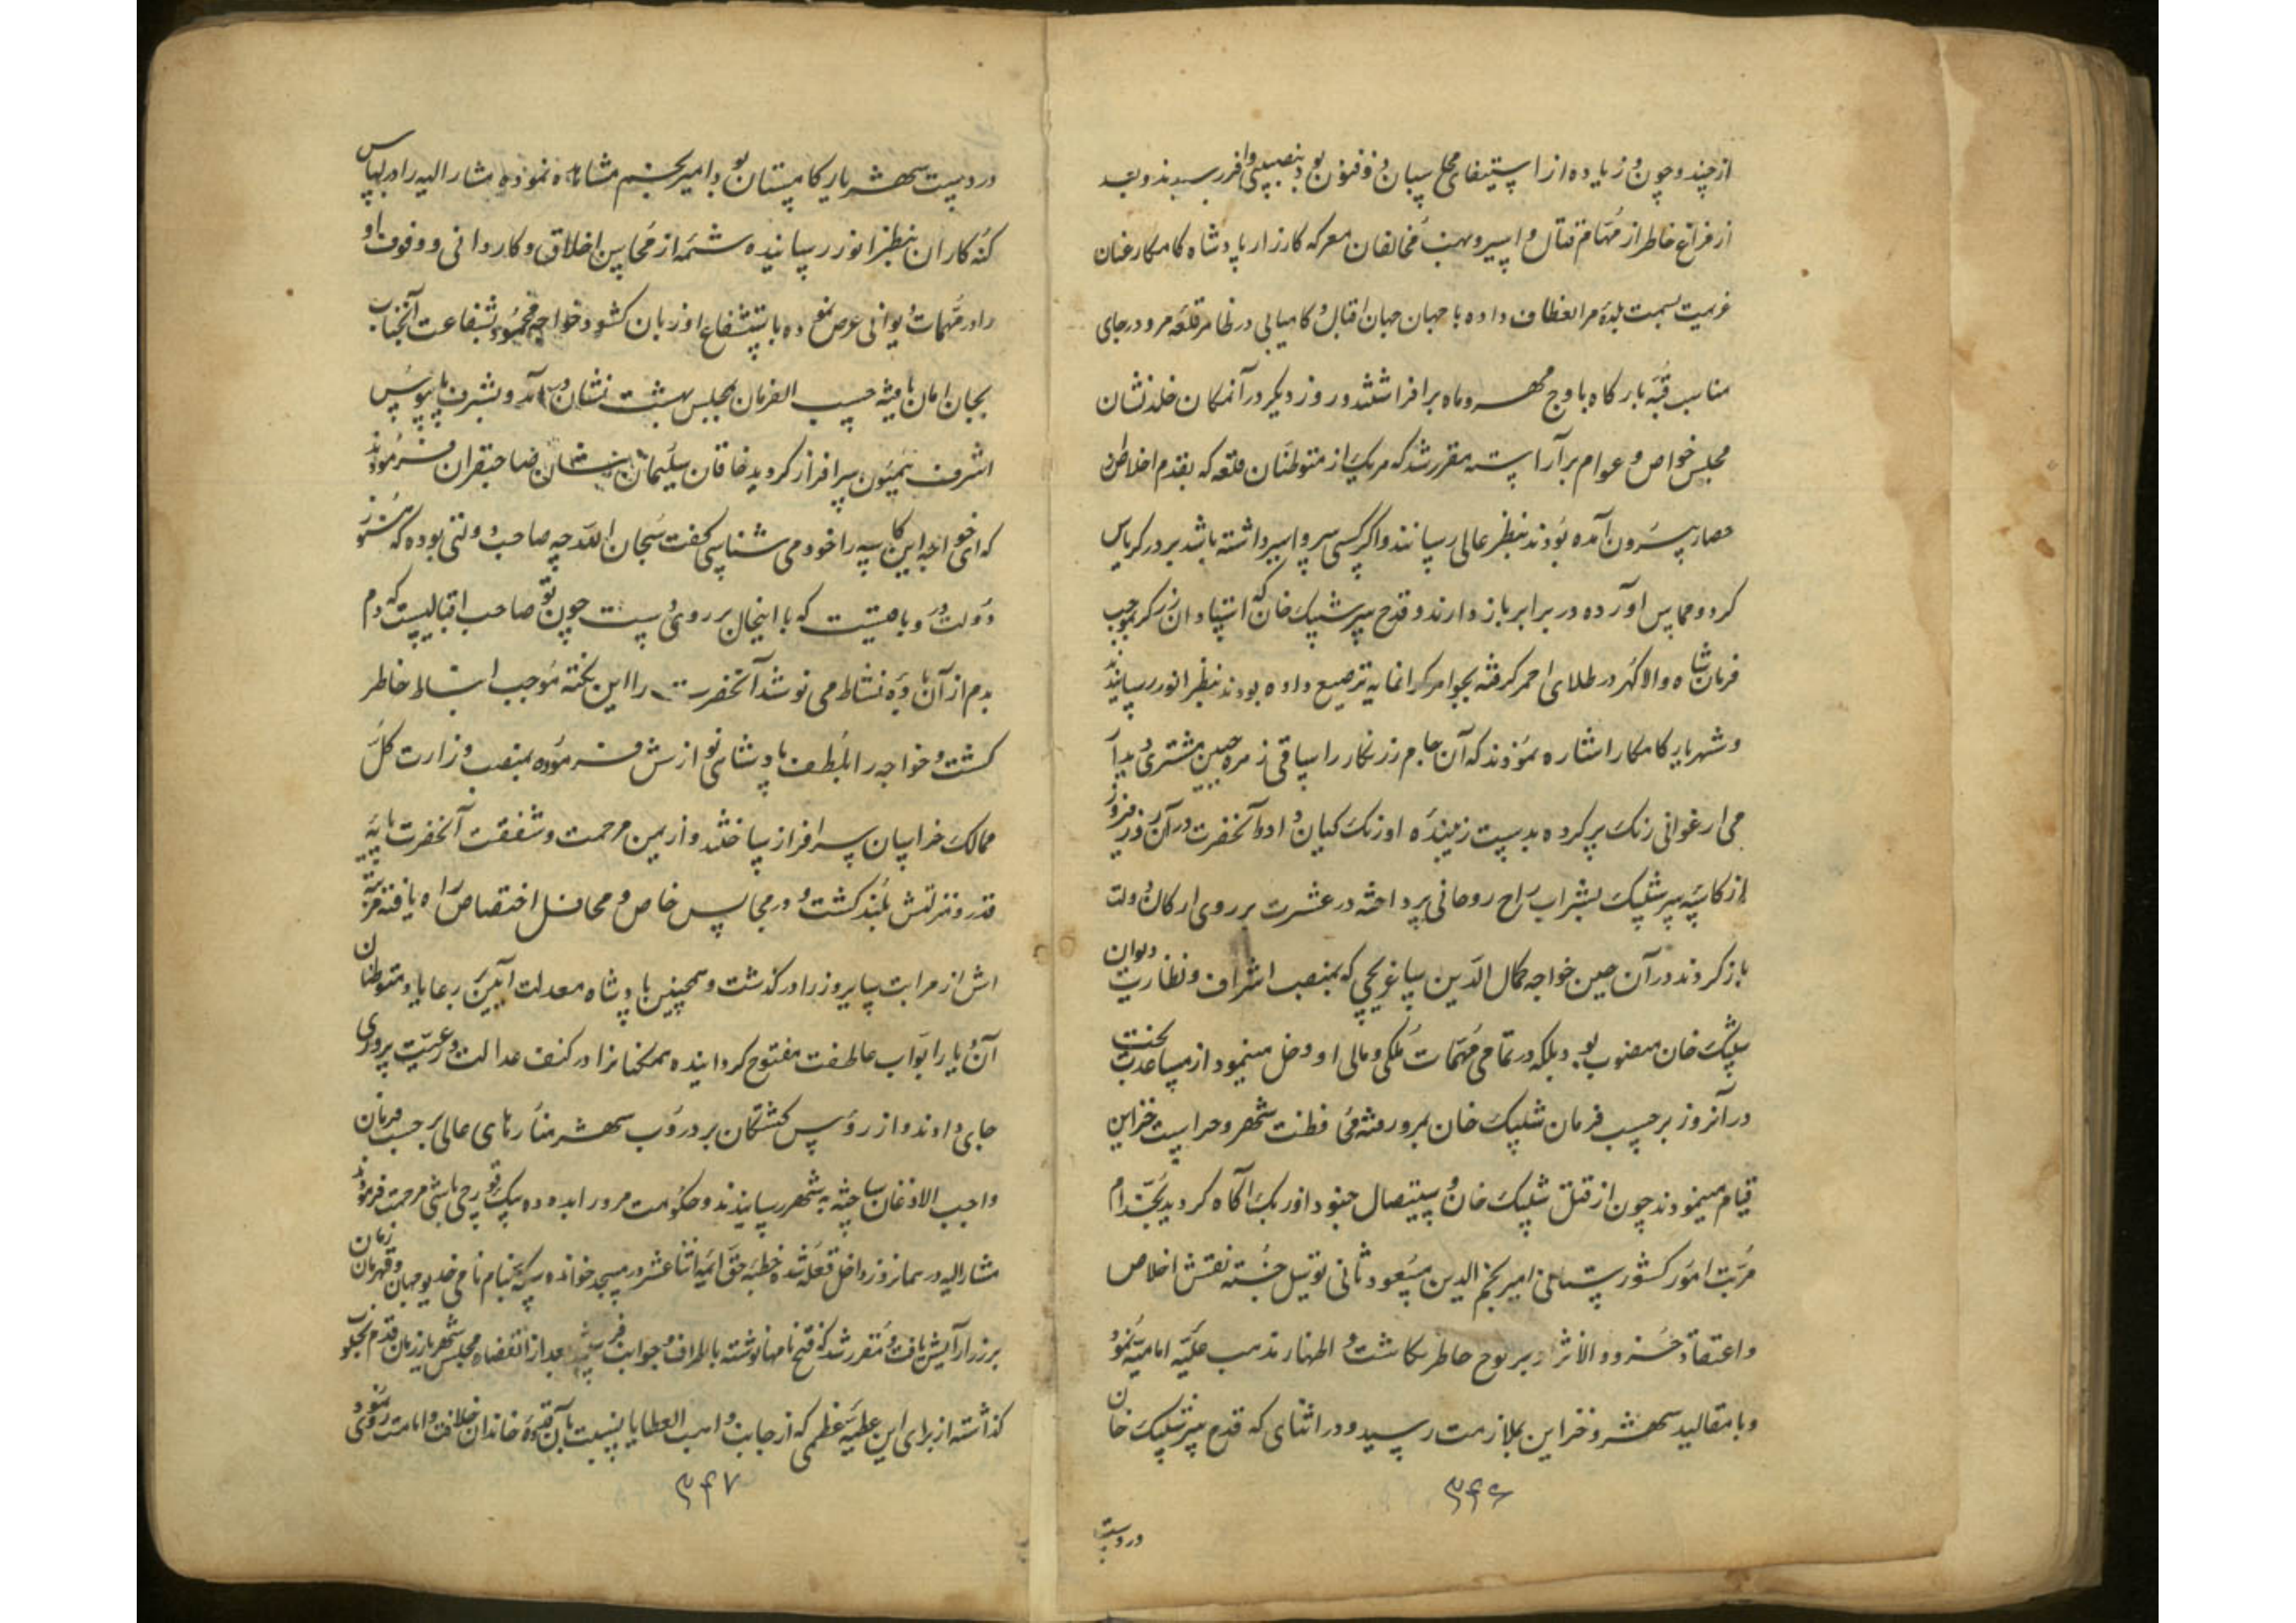 از چند و چون و زیاده از استیفای محاسبان ذوفنون بود نصیبی وافر رسیدند و بعد
از فراغ خاطر از مهام قتال و اسیر و نهب مخالفان معرکه کارزار پادشاه کامکار عنان
عزیمت بسمت بلدۀ مرو انعطاف داده با جهان جهان اقبال و کامیابی در ظاهر قلعه مرو در جای
مناسب قبۀ بارگاه باوج مهر و ماه برافراشتند و روز دیگر در آنمکان خلد نشان
مجلس خواص و عوام برآراسته مقرر شد که هریک از متوطنان قلعه که بقدم اخلاص از
حصار بیرون آمده بودند بنظر عالی رسانند و اگر کسی سر و اسیر داشته باشد بر در کریاس
گردون مماس آورده در برابر باز دارند و قدح سر شیبک خان که استادان زرگر بموجب
فرمان شاه والا گهر در طلای احمر گرفته بجواهر گرانمایه ترصیع داده بودند بنظر انور رسانیدند
و شهریار کامکار اشاره نمودند که آن جام زرنگار را ساقی زهره جبین مشتری دیدار
می ارغوانی رنگ پر کرده بدست زیبنده اورنگ کیان داد و آنحضرت در آن روز فیروز
از کاسۀ سر شیبک بشراب راح روحانی پرداخته در عشرت بر روی ارکان دولت
باز کردند در آن حین خواجه کمال الدین ساغرچی که بمنصب اشراف و نظارت دیوان
شیبک خان منصوب بود بلکه در تمامی مهمات ملکی و مالی او دخل مینمود از مساعدت بخت
در آنروز برحسب فرمان شیبک خان بمرو رفته در محافظت شهر و حراست خزاین
قیام مینمودند چون از قتل شیبک خان و استیصال جنود اوزبک آگاه گردید بخدام
مرتب امور کشورستانی امیر نجم الدین مسعود ثانی توسل جسته نقش اخلاص
و اعتقاد خسرو والانژاد بر لوح خاطر نگاشت و اظهار مذهب علیه امامیه نمود
و با مقالید شهر و خزاین بملازمت رسید و در اثنای که قدح سر شیبک خان
۳۴۶
در دست
در دست شهریار کامستان بود امیر نجم مشاهده نموده مشارالیه را در لباس
گنه کاران بنظر انور رسانیده شمه از محاسن اخلاق و کاردانی و وقوف او
را در مهمات دیوانی عرض نموده باستشفاع او زبان گشود خواجه محمود بشفاعت آنجناب
بجان امان یافته حسب الفرمان بمجلس بهشت نشان در آمد و بشرف پایبوس
اشرف همیون سرافراز گردید خاقان سلیمان شان صاحبقران فرمودند
که ای خواجه این کاسه را خود می شناسی گفت سبحان الله چه صاحب دولتی بوده که هنوز
دولت در وی باقیست که با اینحال بر روی دست چون تو صاحب اقبالیست که دم
بدم از آن بادۀ نشاط می نوشد آنحضرت را این نکته موجب انبساط خاطر
گشت و خواجه را بلطف پادشاهی نوازش فرموده بمنصب وزارت کل
ممالک خراسان سرافراز ساختند و از یمن مرحمت و شفقت آنحضرت پایۀ
قدر و منزلتش بلند گشت و در مجالس خاص و محافل اختصاص راه یافته مرتبه
اش از مراتب سایر وزرا در گذشت و همچنین پادشاه معدلت آیین رعایا و متوطنان
آن دیار را ابواب عاطفت مفتوح گردانیده همگنانرا در کنف عدالت و رعیت پروری
جای دادند و از رؤس کشتگان بر دروب شهر منارهای عالی برحسب فرمان
واجب الاذعان ساخته بشهر رسانیدند و حکومت مرو را بده ده بیک قورچی باشی مرحمت فرمودند
مشارالیه در همانروز داخل قلعه شده خطبه حق ائمه اثنا عشر در مسجد خوانده سکه بنام نامی خدیو جهان و قهرمان زمان
بر زر آرایش یافت و مقرر شد که فتح نامها نوشته باطراف و جوانب فرستند بعد از انقضاء مجلس شهریار زمان قدم بجلو
گذاشته از برای این عطیه عظمی که از جانب واهب العطایا نسبت بآن قدوۀ خاندان خلافت و امامت روی نمود
۳۴۷